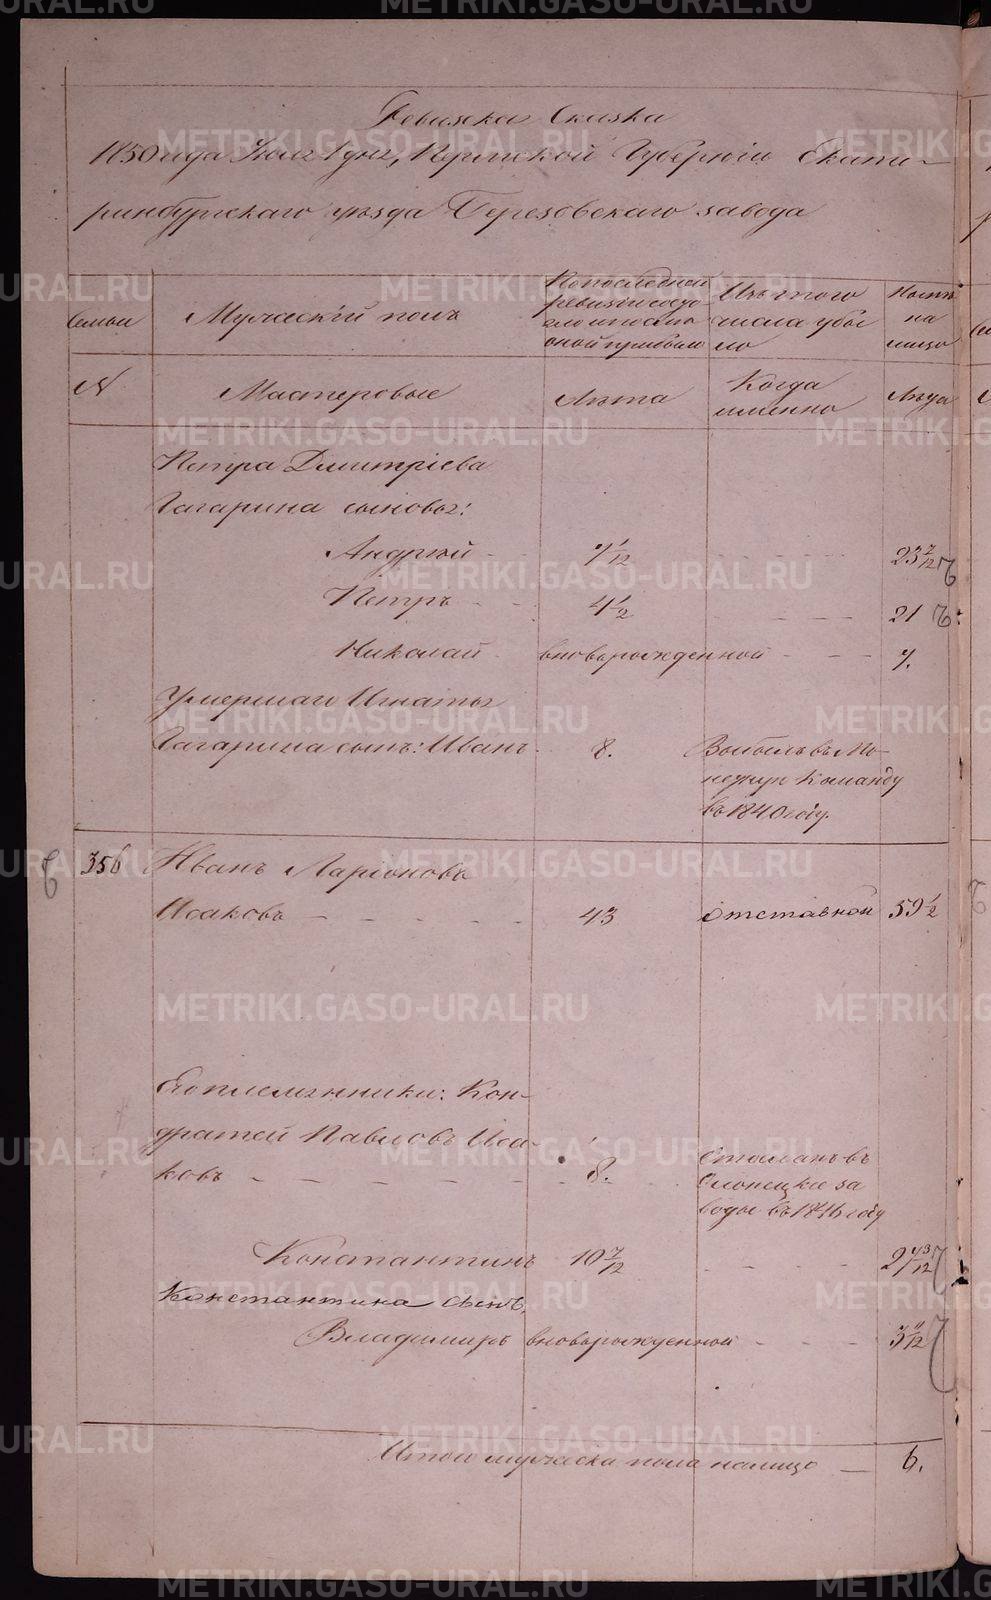 Ревижская Сказка
1850 года Июля 1 дня, Пермской Губерніи Екате-
ринбургскаго уѣзда Березовскаго завода
Семьи
Мужескій полъ
По последней ревизіи состо
яло и после оной прибыло
Изъ того числа убы
ло
Ныне на лицо
№
Мастеровые
Лѣта
Когда именно
Лѣта
Петра Дмитріева
Гагарина сыновья:
Андрей - - 7 1/12 - - - 23 7/12
Петръ - - 4 1/2 - - - 21
Николай - вновьрожденной - - - 7.
Умершаго Игнатья
Гагарина сынъ: Иванъ - 8. Выбылъ въ
команду
въ 1840 году.
356 Иванъ Ларіоновъ
Исаковъ - - - - 43 Отставной 59 1/2
Его племянники: Кон-
дратей Павловъ Иса-
ковъ - - - - - - 8. Отосланъ въ
Олонецкіе за
воды въ 1846 году
Константинъ 10 7/12 - - -
Константина сынъ,
Владимиръ вновьрожденной - - - 3 11/12
Итого мужеска пола налицо — 6.
METRIKI.GASO-URAL.RU